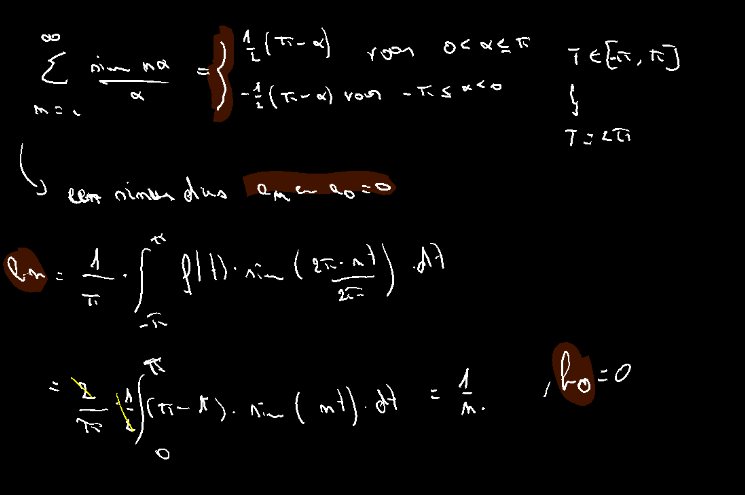 ∞
∑ sin nα / α = { 1/2 (π - α) voor 0 < α ≤ π T ∈ [-π, π]
n = 1 - 1/2 (π - α) voor - π ≤ α < 0 T = 2π
een sinus dus aₙ en a₀ = 0
bₙ = 1/π · ∫_{-π}^{π} f(t) · sin ( 2π · nt / 2π ) · dt
= 2/π · 1/2 ∫_{0}^{π} (π - t) · sin ( nt ) · dt = 1/n . , b₀ = 0